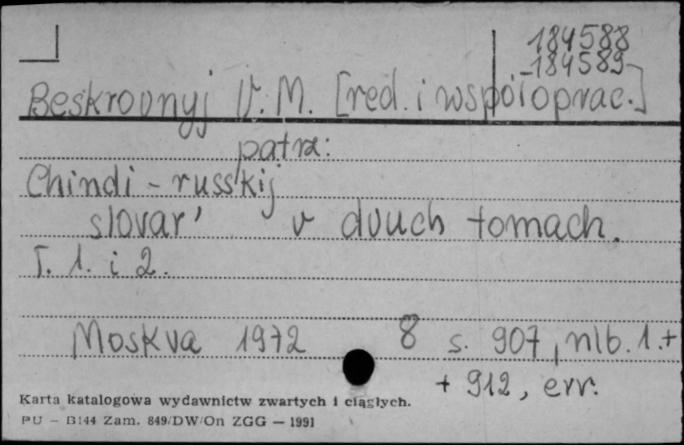 184588
-184589
Beskrovnyj V. M. [red. i współoprac.]
patrz:
Chindi-russkij
slovar' v dvuch tomach.
T. 1. i 2.
Moskva 1972 8 s. 907, nlb. 1. +
+ 912, err.
Karta katalogowa wydawnictw zwartych i ciągłych.
PU – B144 Zam. 849/DW/On ZGG — 1991